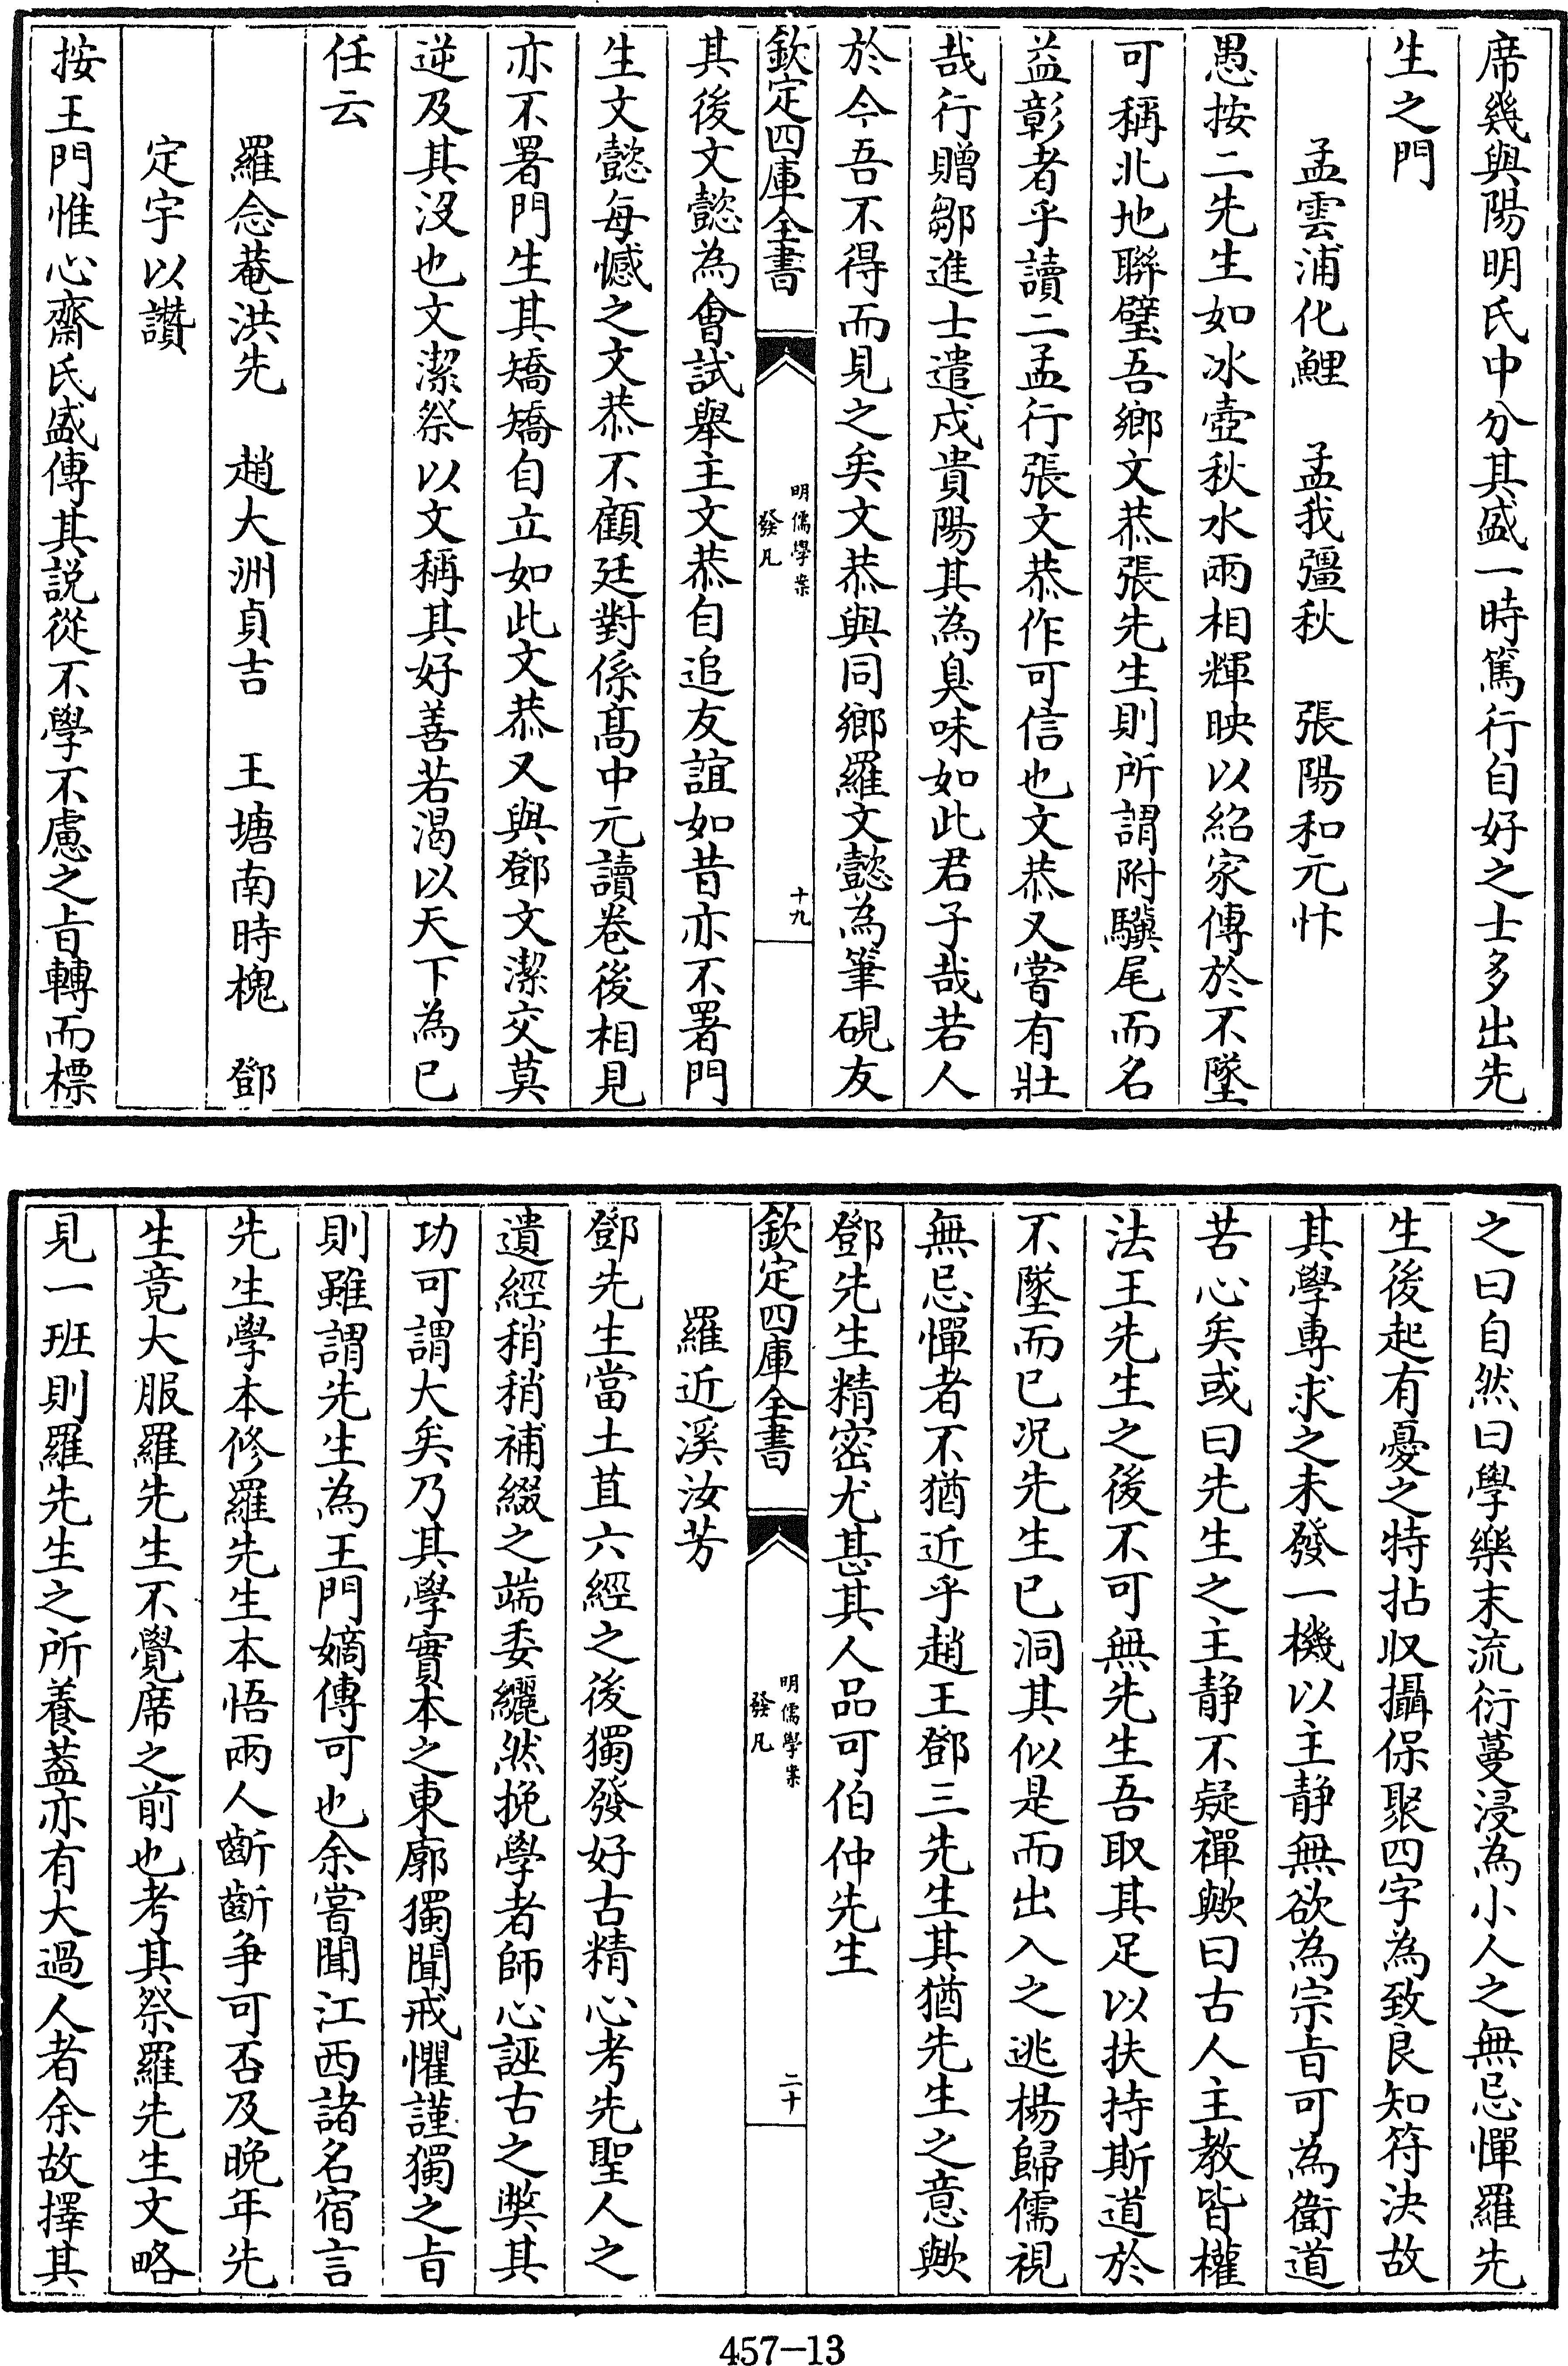 席幾與陽明氏中分其盛一時篤行自好之士多出先
生之門
孟雲浦化鯉　孟我疆秋　張陽和元忭
愚按二先生如冰壺秋水兩相輝映以紹家傳於不墜
可稱北地聯璧吾鄉文恭張先生則所謂附驥尾而名
益彰者乎讀二孟行張文恭作可信也文恭又嘗有壯
哉行贈鄒進士遣戍貴陽其為臭味如此君子哉若人
於今吾不得而見之矣文恭與同鄉羅文懿為筆硯友
欽定四庫全書
明儒學案
發凡
十九
其後文懿為會試舉主文恭自追友誼如昔亦不署門
生文懿每憾之文恭不顧廷對係高中元讀卷後相見
亦不署門生其矯矯自立如此文恭又與鄧文潔交莫
逆及其沒也文潔祭以文稱其好善若渴以天下為已
任云
羅念菴洪先　趙大洲貞吉　王塘南時槐　鄧
定宇以讚
按王門惟心齋氏盛傳其説從不學不慮之旨轉而標
之曰自然曰學樂末流衍蔓浸為小人之無忌憚羅先
生後起有憂之特拈収攝保聚四字為致良知符決故
其學專求之未發一機以主静無欲為宗旨可為衛道
苦心矣或曰先生之主静不疑禪歟曰古人主教皆權
法王先生之後不可無先生吾取其足以扶持斯道於
不墜而已况先生已洞其似是而出入之逃楊歸儒視
無忌憚者不猶近乎趙王鄧三先生其猶先生之意歟
鄧先生精密尤甚其人品可伯仲先生
欽定四庫全書
明儒學案
發凡
二十
羅近溪汝芳
鄧先生當土苴六經之後獨發好古精心考先聖人之
遺經稍稍補綴之端委纚然挽學者師心誣古之獘其
功可謂大矣乃其學實本之東廓獨聞戒懼謹獨之旨
則雖謂先生為王門嫡傳可也余嘗聞江西諸名宿言
先生學本修羅先生本悟兩人齗齗争可否及晚年先
生竟大服羅先生不覺席之前也考其祭羅先生文略
見一班則羅先生之所養蓋亦有大過人者余故擇其
457-13